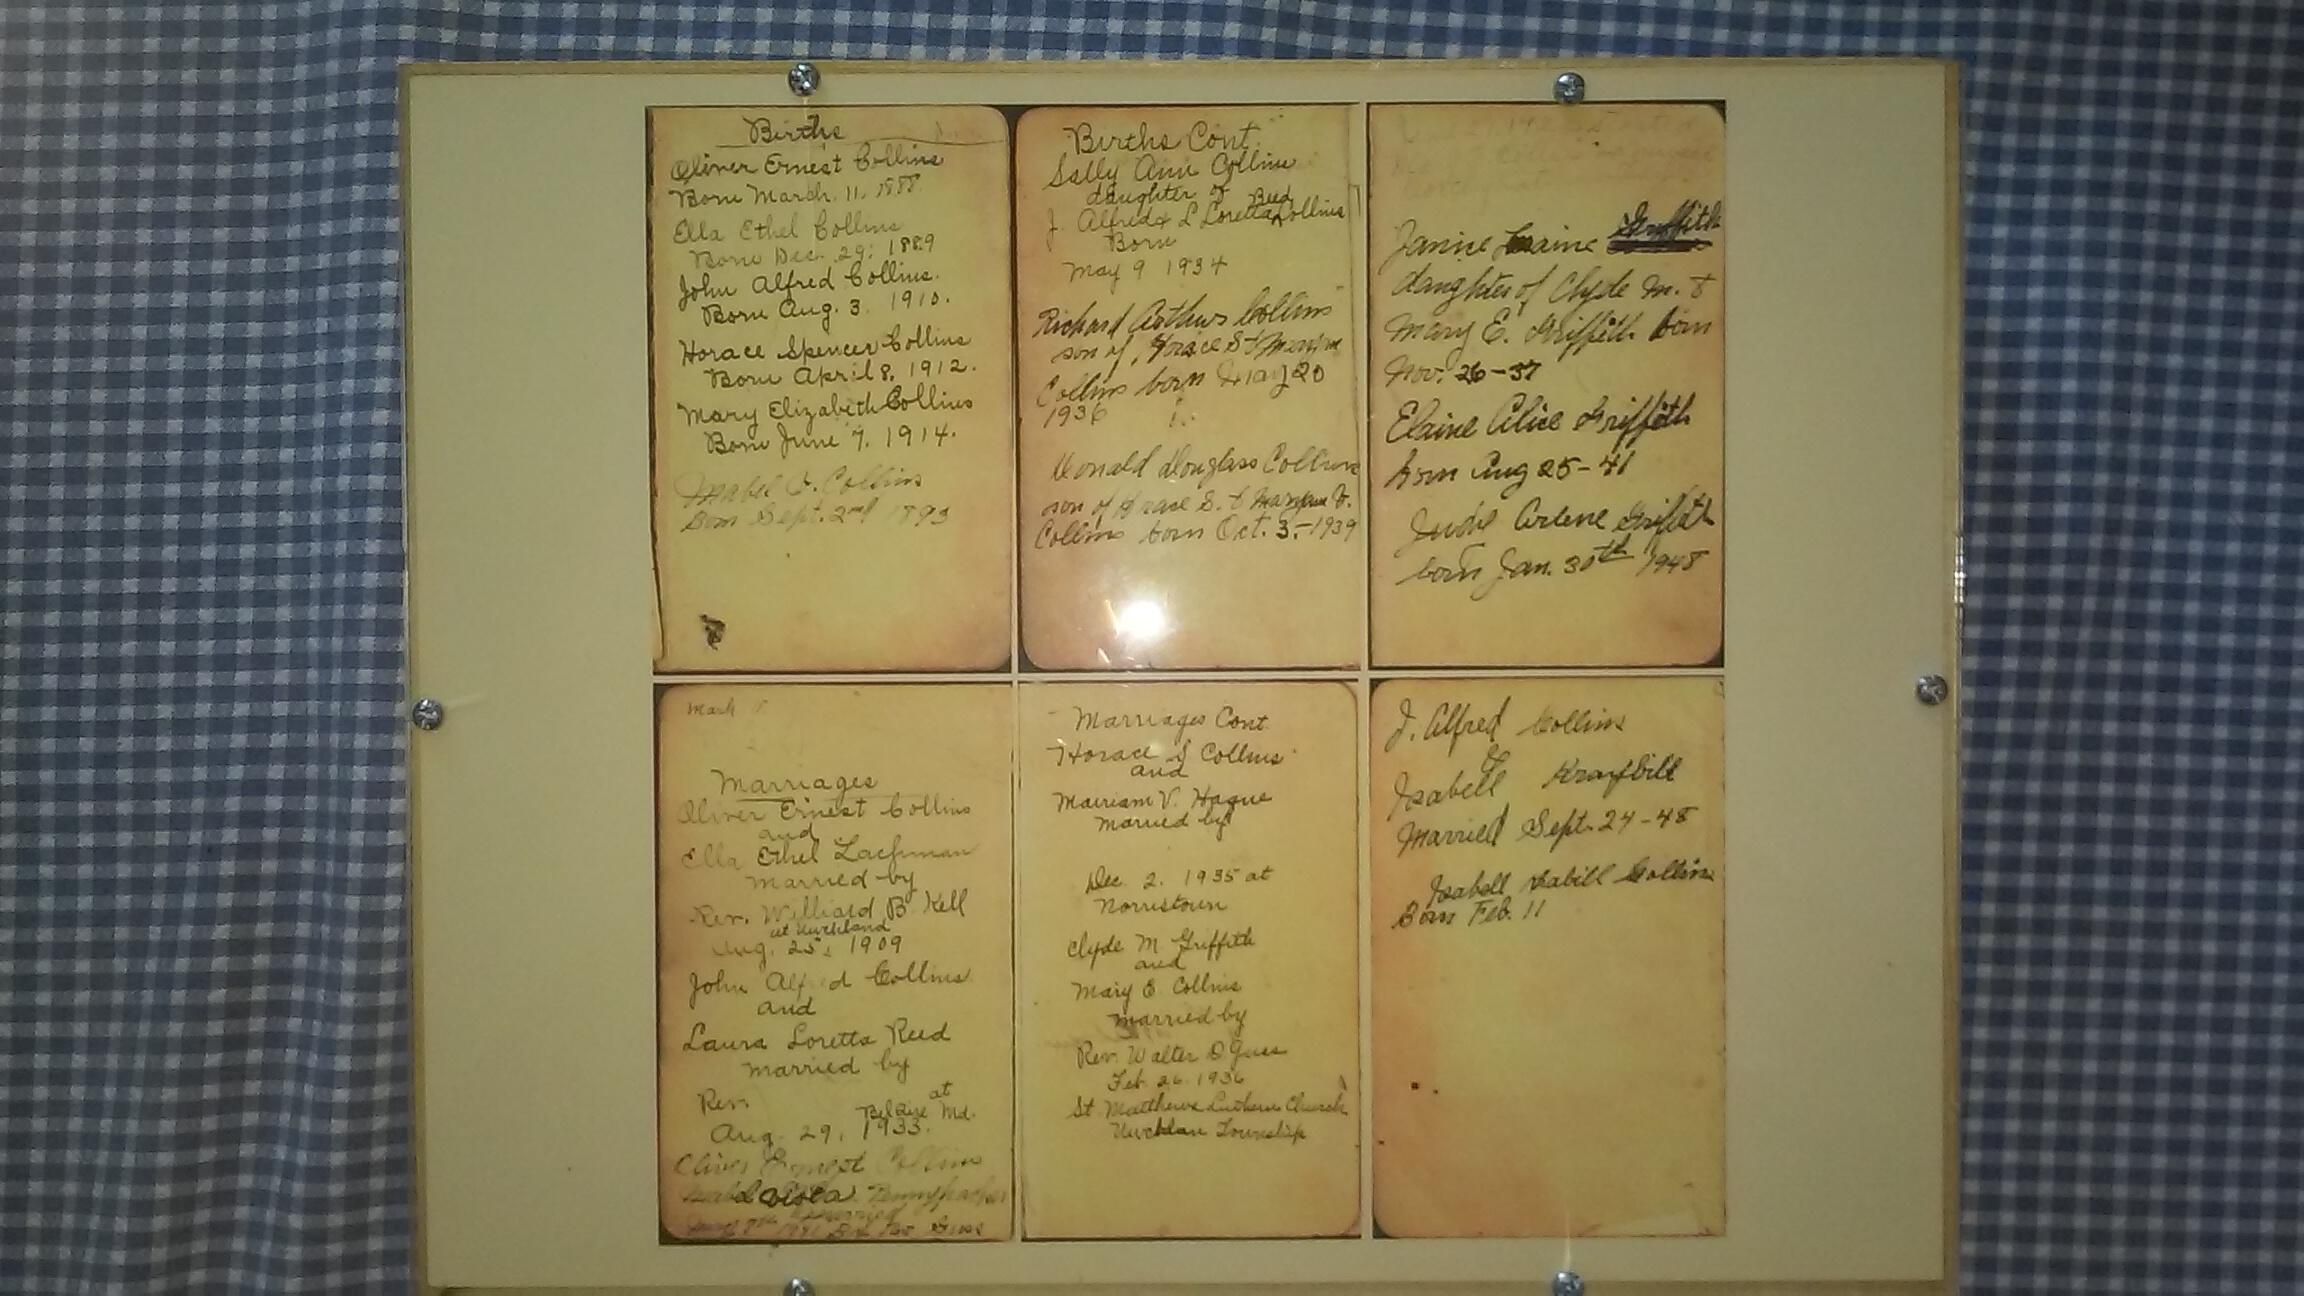 Births
Oliver Ernest Collins
Born March. 11. 1888.
Ella Ethel Collins
Born Dec. 29: 1889
John Alfred Collins.
Born Aug. 3. 1910.
Horace Spencer Collins
Born April 8. 1912.
Mary Elizabeth Collins
Born June 7. 1914.
Mabel V. Collins
Born Sept. 2nd 1893
Births Cont.
Sally Ann Collins
daughter of
Reed
J. Alfred & L Loretta Collins
Born
May 9 1934
Richard Arthur Collins
son of Horace S &
Collins born May 20
1936
Donald Douglass Collins
son of Horace S. & V.
Collins born Oct. 3.-1939
Griffith
Janice
daughter of Clyde M. &
Mary E. Griffith born
Nov. 26-37
Elaine Alice Griffith
born Aug 25-41
Judie Arlene Griffith
born Jan. 30th 1948
Mark
Marriages
Oliver Ernest Collins
and
Ella Ethel Lachman
married by
Rev. Williard B. Kell
at Uwchland
Aug. 25, 1909
John Alf d Collins
and
Laura Loretta Reed
married by
Rev.
at
Belaire Md.
Aug. 29, 1933.
Oliver Ernest Collins
Viola Pennypacker
married
Marriages Cont.
Horace S Collins
and
Mairiam V. Hague
Married by
Dec. 2. 1935 at
Norristown
Clyde M Griffith
and
Mary E Collins
married by
Rev. Walter D Guss
Feb. 26. 1936
St. Matthews Luthern Church
Uwchlan Township
J. Alfred Collins
&
Isabell Kraybill
Married Sept. 24-48
Isabell Collins
Born Feb. 11